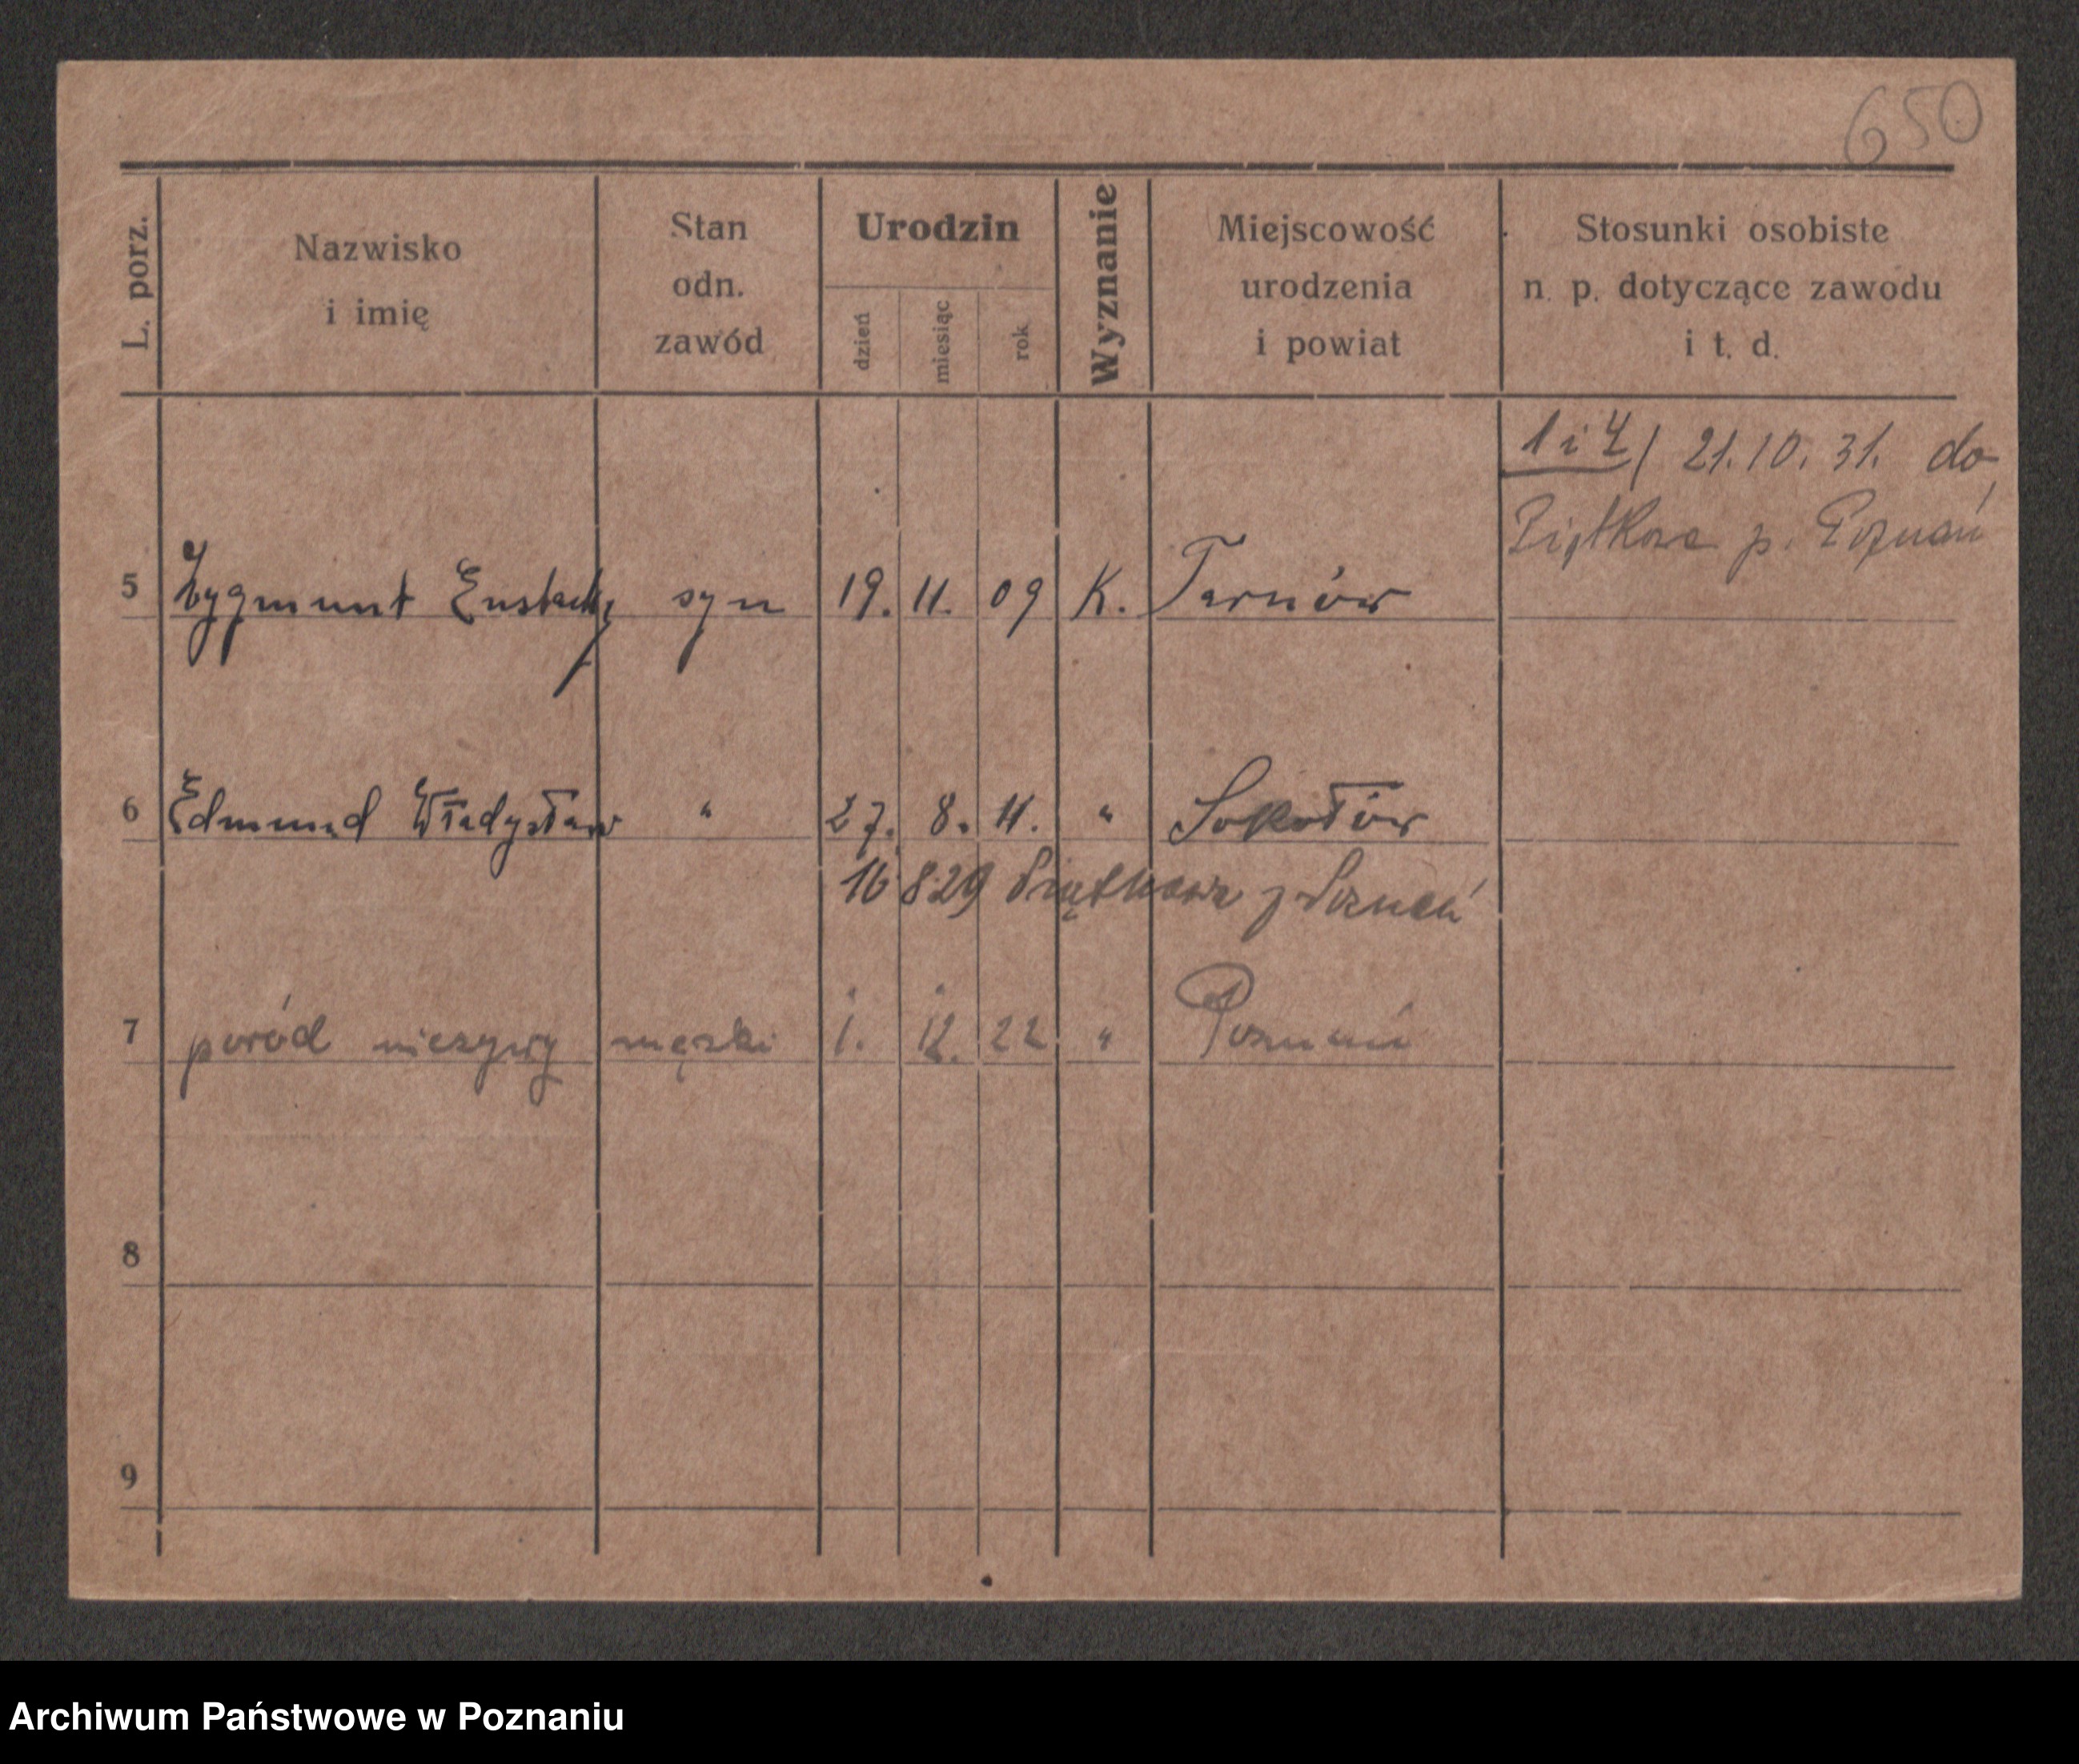 650
L. porz.
Nazwisko
i imię
Stan
odn.
zawód
Urodzin
dzień
miesiąc
rok
Wyznanie
Miejscowość
urodzenia
i powiat
Stosunki osobiste
n. p. dotyczące zawodu
i t. d.
1 i 4/ 21.10.31. do
Piątkowa p. Poznań
5 Zygmunt Eustachy syn 19. 11. 09 K. Tarnów
6 Edmund Władysław " 27. 8. 11. " Sokołów
16 8 29 Piątkowa p Poznań
7 poród nieżywy męzki 1. 12. 22 " Poznań
8
9
Archiwum Państwowe w Poznaniu